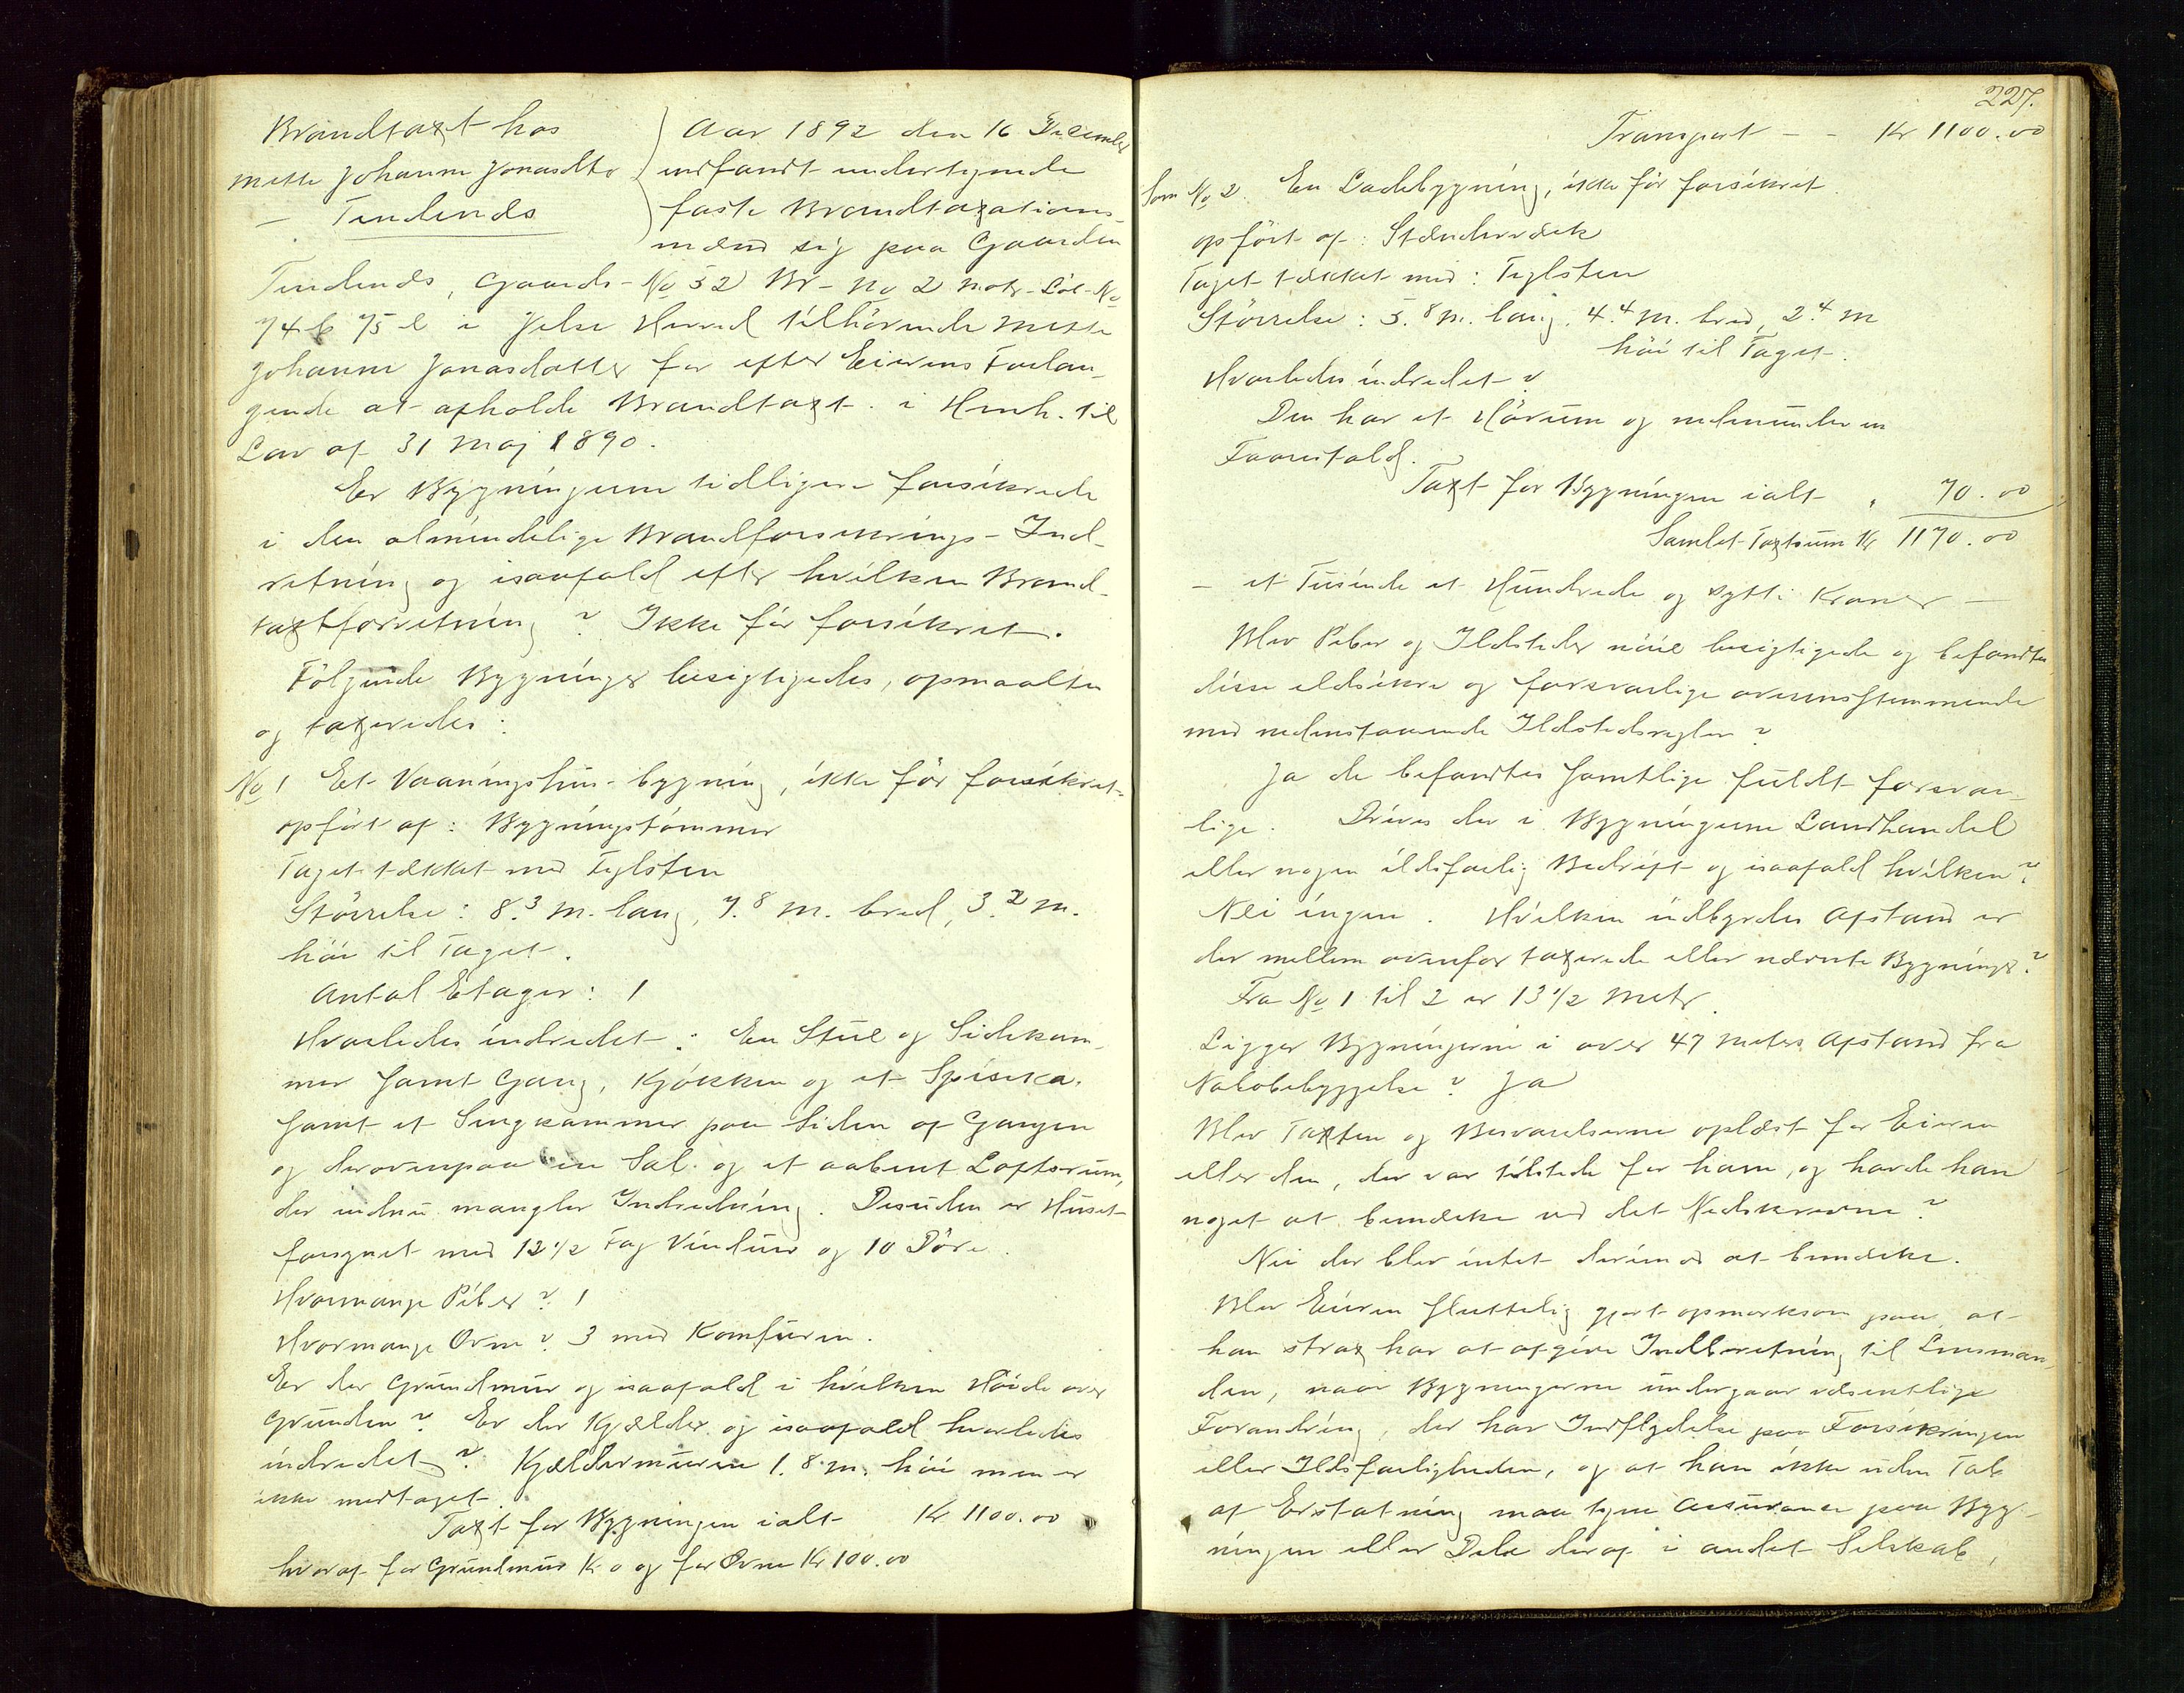 Brandtaxt hos
Mette Johanne Jonasdtr
– Tindenes
Aar 1892 den 16 December
indfandt undertegnede
faste Brandtaxations-
mænd sig paa Gaarden
Tindenes, Gaards-No 52 Br-No 2 Matr-Løb-No
74 b 75 b i Jelse Herred tilhørende Mette
Johanne Jonasdatter for efter Eierens Forlan-
gende at afholde Brandtaxt i Henh. til
Lov af 31 Maj 1890.
Er Bygningerne tidligere forsikrede
i den almindelige Brandforsikrings-Ind-
retning og isaafald efter hvilken Brand-
taxtforretning? Ikke før forsikret.
Følgende Bygninger besigtigedes, opmaaltes
og taxeredes:
No 1 Et Vaaningshus-bygning, ikke før forsikret
opført af: Bygningstømmer
Taget tækket med Teglsten
Størrelse: 8.3 m. lang, 7.8 m. bred, 3.2 m.
høi til Taget.
Antal Etager: 1
Hvorledes indredet: En Stue og Sidekam-
mer samt Gang, Kjøkken og et Spiseka.
samt et Sengkammer paa Siden af Gangen
og derovenpaa en Sal og et aabent Loftsrum,
der endnu mangler Indredning. Desuden er Huset
forsynet med 12 1/2 Fag Vinduer og 10 Døre.
Hvormange Piber? 1
Hvormange Ovne? 3 med Komfuren.
Er der Grundmur og isaafald i hvilken Høide over
Grunden? Er der Kjælder og isaafald hvorledes
indredet? Kjældermuren 1.8 m. høi men er
ikke medtaget.
Taxt for Bygningen ialt Kr 1100.00
hvoraf for Grundmur K. 0 og for Ovne Kr 100.00
227.
Transport – – Kr 1100.00
Som No 2. En Ladebygning, ikke før forsikret.
opført af: Stænderværk
Taget tækket med: Teglsten
Størrelse: 5.8 m. lang, 4.4 m. bred, 2.4 m
høi til Taget.
Hvorledes indredet?
Den har et Hørum og nedenunder en
Faarestald.
Taxt for Bygningen ialt " 70.00
Samlet Taxtsum Kr 1170.00
– et Tusinde et Hundrede og sytti Kroner –
Blev Piber og Ildsteder nøie besigtigede og befandtes
disse ildsikre og forsvarlige overensstemmende
med nedenstaaende Ildstedsregler?
Ja de befandtes samtlige fuldt forsvar-
lige. Drives der i Bygningerne Landhandel
eller nogen ildsfarlig Bedrift og isaafald hvilken?
Nei ingen. Hvilken indbyrdes Afstand er
der mellem ovenfor taxerede eller nævnte Bygninger?
Fra No 1 til 2 er 13 1/2 Metr.
Ligger Bygningerne i over 47 Meters Afstand fra
Nabobebyggelse? Ja
Blev Taxten og Besvarelserne oplæst for Eieren
eller den, der var tilstede for ham, og havde han
noget at bemærke ved det Nedskrevne?
Nei der blev intet derimod at bemærke.
Blev Eieren sluttelig gjort opmærksom paa, at
han strax har at afgive Indberetning til Lensman-
den, naar Bygningerne undergaar væsentlige
Forandring, der har Indflydelse paa Forsikringen
eller Ildsfarligheden, og at han ikke uden Tab
af Erstatning maa tegne Assurance paa Byg-
ningen eller Dele deraf i andet Selskab,